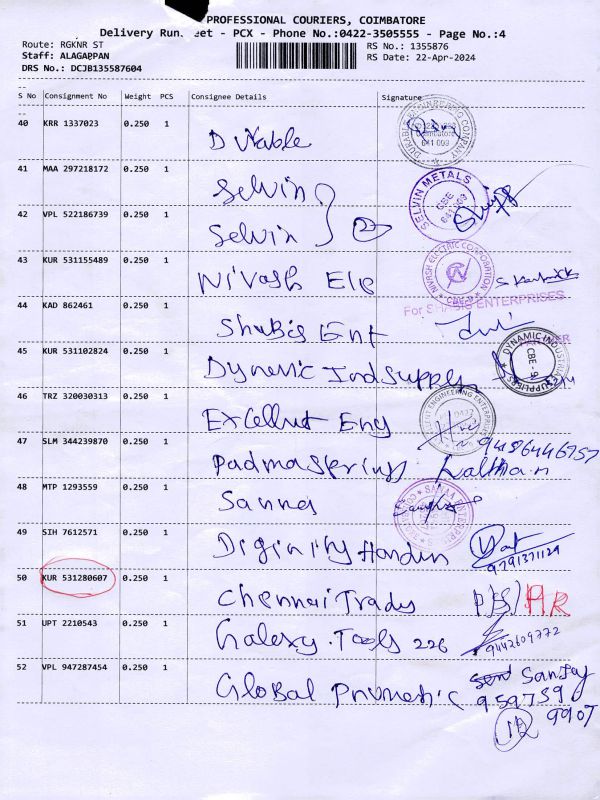 PROFESSIONAL COURIERS, COIMBATORE
Delivery Run eet - PCX - Phone No.:0422-3505555 - Page No.:4
Route: RGKNR ST
RS No.: 1355876
Staff: ALAGAPPAN
RS Date: 22-Apr-2024
DRS No.: DCJB135587604
S No Consignment No Weight PCS Consignee Details Signature
40 KRR 1337023 0.250 1
641 009
41 MAA 297218172 0.250 1 Selvin
SELVIN METALS
CBE
42 VPL 522186739 0.250 1 Selvin 2
43 KUR 531155489 0.250 1 Nivash Ele
ELECTRIC CORPORATION
S. Karthick
44 KAD 862461 0.250 1
ENTERPRISES
45 KUR 531102824 0.250 1 Dynemic Ind Supples
DYNAMIC INDUSTRIAL SUPPLIERS
CBE - 9
46 TRZ 320030313 0.250 1 Excellent Eng
ENGINEERING ENTERPRISE
9486446757
47 SLM 344239870 0.250 1 Padma Springs
48 MTP 1293559 0.250 1
49 SIH 7612571 0.250 1
9791371129
50 KUR 531280607 0.250 1 Chennai Trady
51 UPT 2210543 0.250 1 Galexy Tools 226
9442609772
52 VPL 947287454 0.250 1 Global Pnumetic
Sanjay
959759
9907